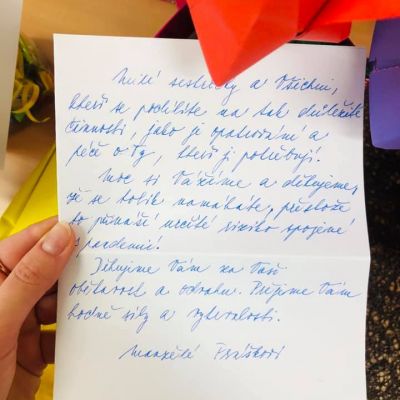 Milé sestřičky a Všichni,
kteří se podílíte na tak důležité
činnosti, jako je opatrování a
péče o Ty, kteří ji potřebují!
Moc si Vážíme a děkujeme,
že se tolik namáháte, přestože
to přináší určité riziko spojené
s pandemií!
Děkujeme Vám za Vaši
obětavost a odvahu. Přejeme Vám
hodně síly a vytrvalosti.
Manželé Práškovi